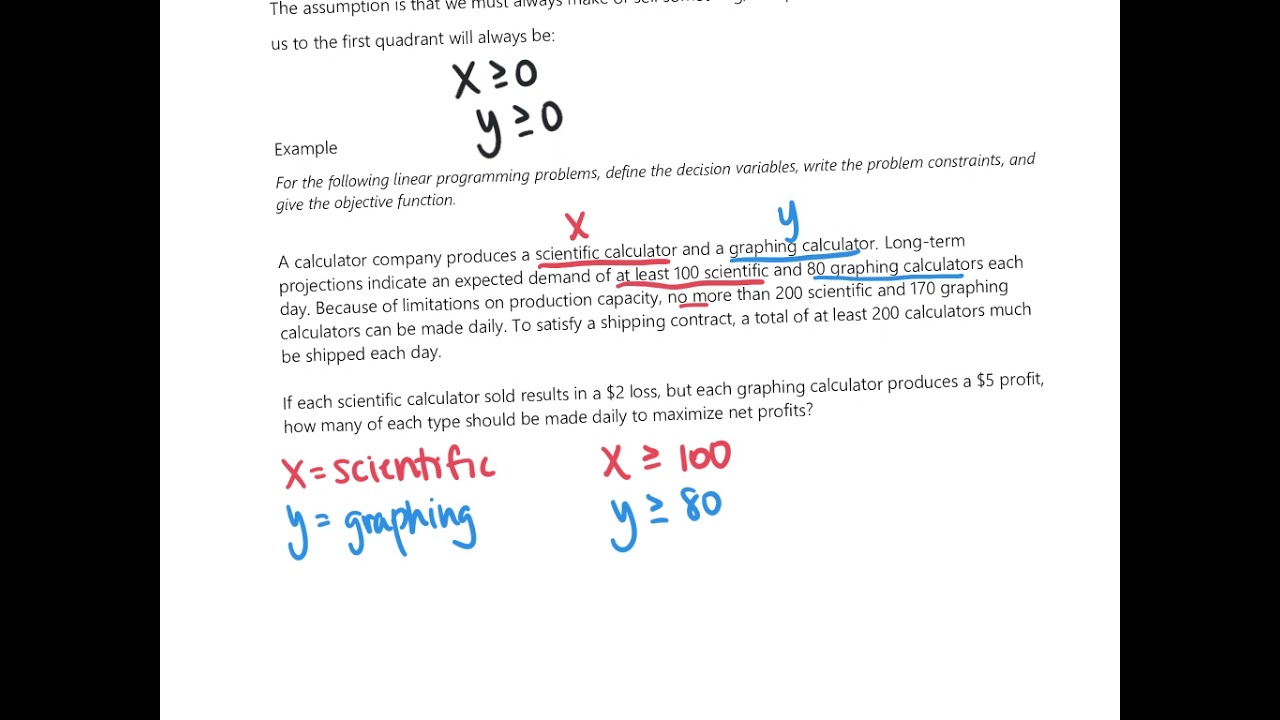 The assumption is that we must always make or sell
us to the first quadrant will always be:
x ≥ 0
y ≥ 0
Example
For the following linear programming problems, define the decision variables, write the problem constraints, and
give the objective function.
x y
A calculator company produces a scientific calculator and a graphing calculator. Long-term
projections indicate an expected demand of at least 100 scientific and 80 graphing calculators each
day. Because of limitations on production capacity, no more than 200 scientific and 170 graphing
calculators can be made daily. To satisfy a shipping contract, a total of at least 200 calculators much
be shipped each day.
If each scientific calculator sold results in a $2 loss, but each graphing calculator produces a $5 profit,
how many of each type should be made daily to maximize net profits?
x = scientific x ≥ 100
y = graphing y ≥ 80